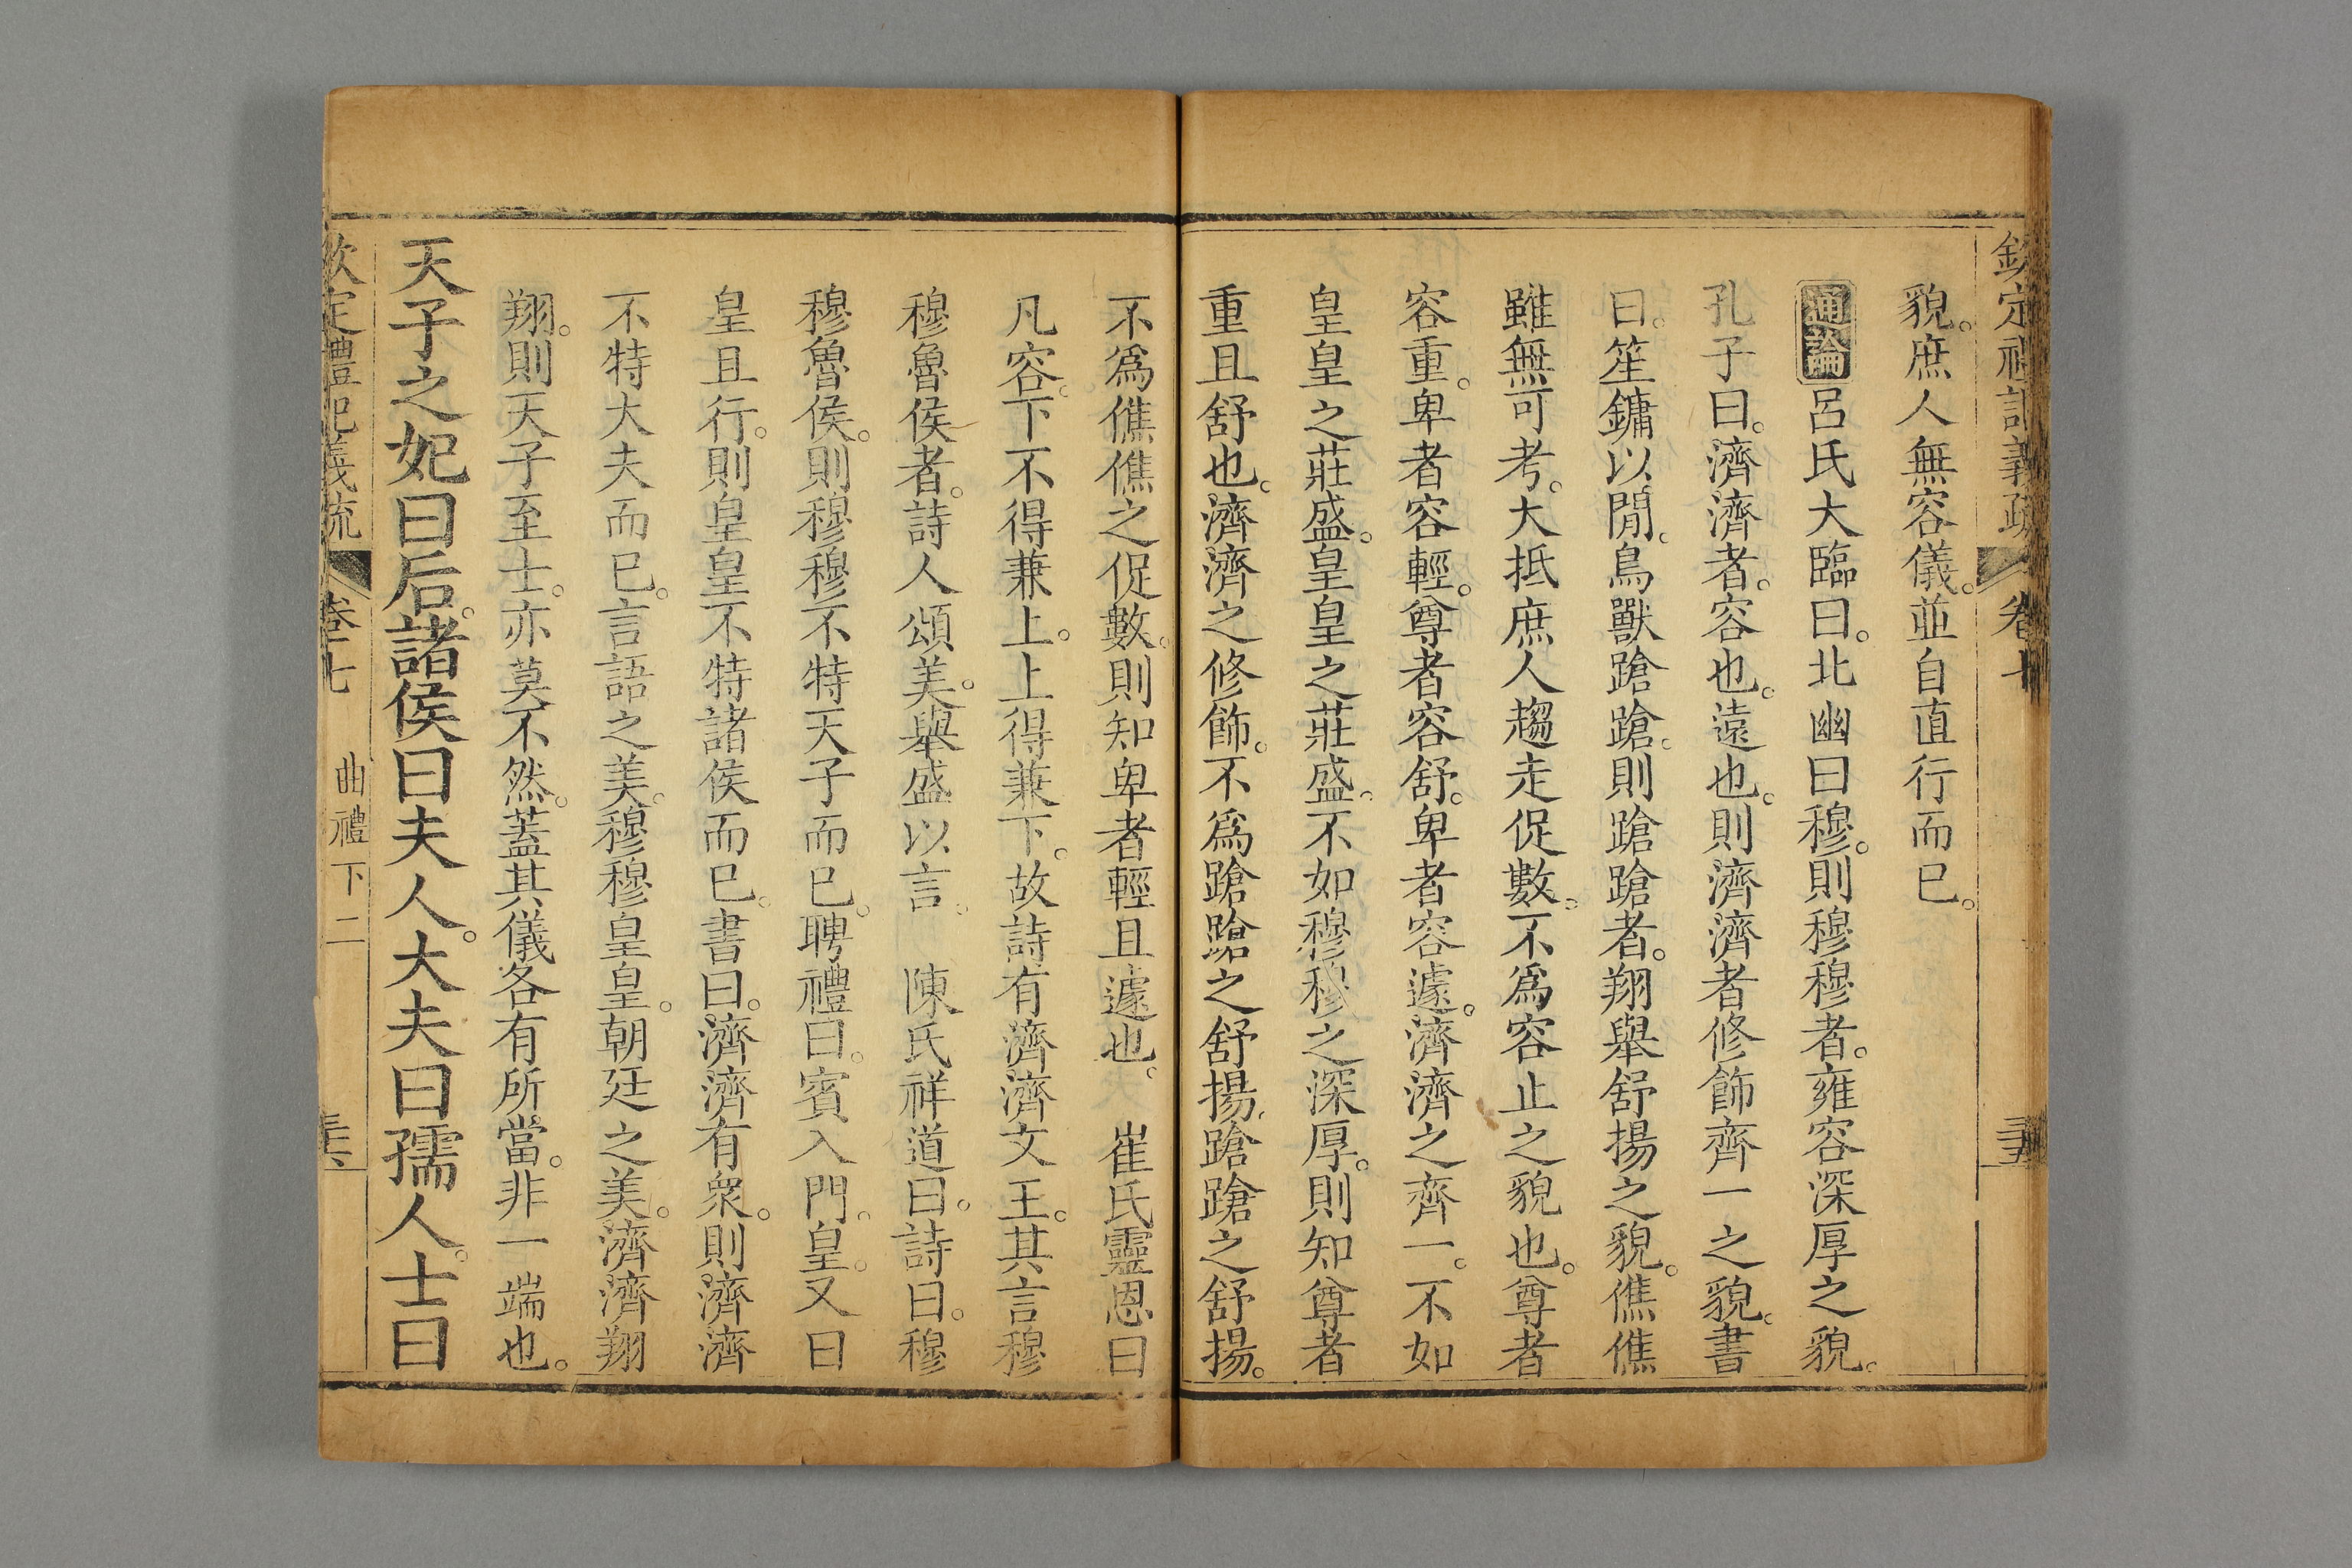 欽定禮記義疏 卷七 三五
貌。庶人無容儀。並自直行而已。
通論 呂氏大臨曰。北幽曰穆。則穆穆者。雍容深厚之貌。
孔子曰。濟濟者。容也。遠也。則濟濟者修飾齊一之貌。書
曰。笙鏞以閒。鳥獸蹌蹌。則蹌蹌者。翔舉舒揚之貌。僬僬
雖無可考。大抵庶人趨走促數。不爲容止之貌也。尊者
容重。卑者容輕。尊者容舒。卑者容遽。濟濟之齊一。不如
皇皇之莊盛。皇皇之莊盛。不如穆穆之深厚。則知尊者
重且舒也。濟濟之修飾。不爲蹌蹌之舒揚。蹌蹌之舒揚。
不爲僬僬之促數。則知卑者輕且遽也。 崔氏靈恩曰
凡容。下不得兼上。上得兼下。故詩有濟濟文王。其言穆
穆魯侯者。詩人頌美。舉盛以言。 陳氏祥道曰。詩曰。穆
穆魯侯。則穆穆不特天子而已。聘禮曰。賓入門。皇。又曰
皇且行。則皇皇不特諸侯而已。書曰。濟濟有衆。則濟濟
不特大夫而已。言語之美。穆穆皇皇。朝廷之美。濟濟翔
翔。則天子至士。亦莫不然。蓋其儀各有所當。非一端也。
天子之妃曰后。諸侯曰夫人。大夫曰孺人。士曰
欽定禮記義疏 卷七 曲禮下二 三六